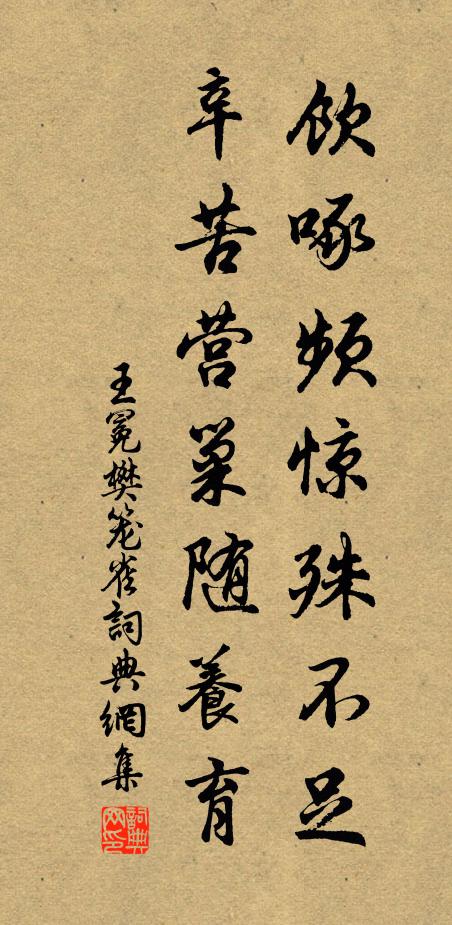 飲啄頻惊殊不足
辛苦营巢随養育
王冕樊笼雀詞典網集
詞典網印